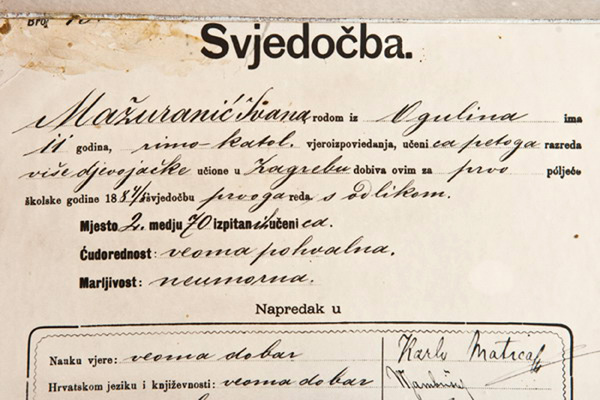 Broj
Svjedočba.
Mažuranić Ivana rodom iz Ogulina ima
11 godina, rimo-katol. vjeroizpoviedanja, učenica petoga razreda
više djevojačke učione u Zagrebu dobiva ovim za prvo polječe
školske godine 1884/5 svjedočbu prvoga reda s odlikom.
Mjesto 2. medju 70 izpitanih učenica.
Ćudorednost: veoma pohvalna.
Marljivost: neumorna.
Napredak u
Nauku vjere: veoma dobar Karlo Matica
Hrvatskom jeziku i književnosti: veoma dobar